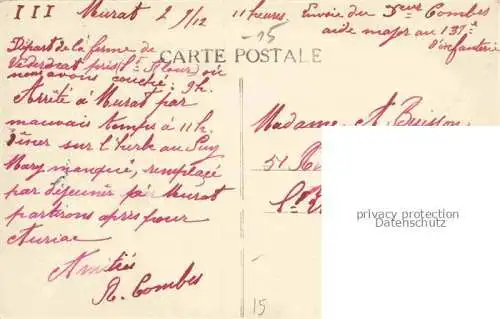 III Murat 2 9/12 11 heures. Envoie du Combes
aide major au
d'infanterie
15
CARTE POSTALE
Départ de la ferme de
près St Flour où
nous avons couché: 9h.
Arrêté à Murat par
mauvais temps à 11h.
Dîner sur l'herbe au Puy
Mary manqué, remplacé
par déjeuner à Murat
partirons après pour
Auriac
Amitiés
R. Combes
Madame A. Buisson
51
privacy protection
Datenschutz
15